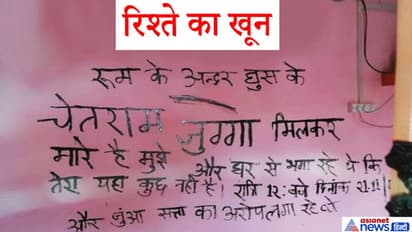 रिश्ते का खून
रूम के अन्दर घुस के
चेतराम जुग्गा मिलकर
मारे है मुझे और घर से भगा रहे थे कि
तेरा यहा कुछ नही है। रात्रि 12: बजे दिनांक 21.11
और जुंआ सत्ता का अरोप लगा रहे थे
asianet
news हिन्दी